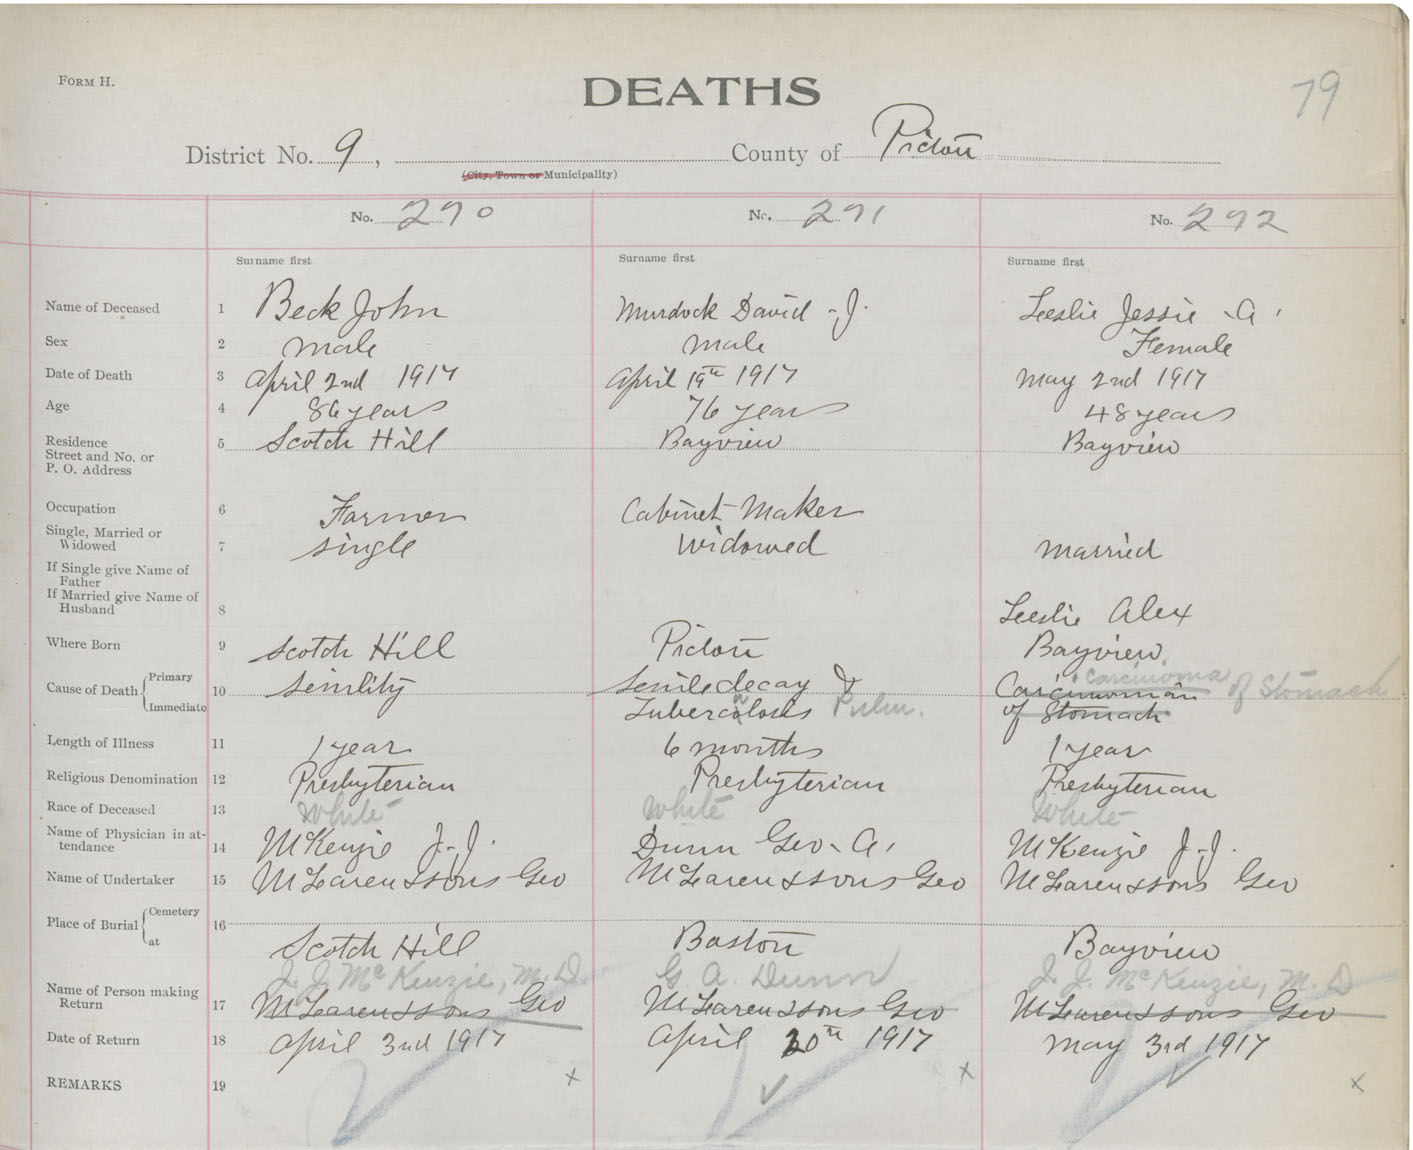 FORM H.
DEATHS
79
District No. 9, County of Pictou
(City, Town or Municipality)
No. 290 No. 291 No. 292
Surname first Surname first Surname first
Name of Deceased 1 Beck John Murdock David J. Leslie Jessie A.
Sex 2 male male Female
Date of Death 3 April 2nd 1917 April 19th 1917 May 2nd 1917
Age 4 86 years 76 years 48 years
Residence
Street and No. or
P. O. Address
5 Scotch Hill Bayview Bayview
Occupation 6 Farmer Cabinet Maker
Single, Married or
Widowed
7 single Widowed married
If Single give Name of
Father
If Married give Name of
Husband
8 Leslie Alex
Where Born 9 Scotch Hill Pictou Bayview
Cause of Death { Primary
Immediate
10 Senility Senile decay & carcinoma of Stomach
Tuberculosis Pulm. of Stomach
Length of Illness 11 1 year 6 months 1 year
Religious Denomination 12 Presbyterian Presbyterian Presbyterian
Race of Deceased 13 White White White
Name of Physician in at-
tendance
14 McKenzie J. J. Dunn Geo. A. McKenzie J. J.
Name of Undertaker 15 McLaren & Sons Geo McLaren & Sons Geo McLaren & Sons Geo
Place of Burial { Cemetery
at
16 Scotch Hill Bayview
J. J. McKenzie, M. D. G. A. Dunn J. J. McKenzie, M. D
Name of Person making
Return
17 McLaren & Sons Geo McLaren & Sons Geo McLaren & Sons Geo
Date of Return 18 April 3rd 1917 April 20th 1917 May 3rd 1917
REMARKS 19 x x x